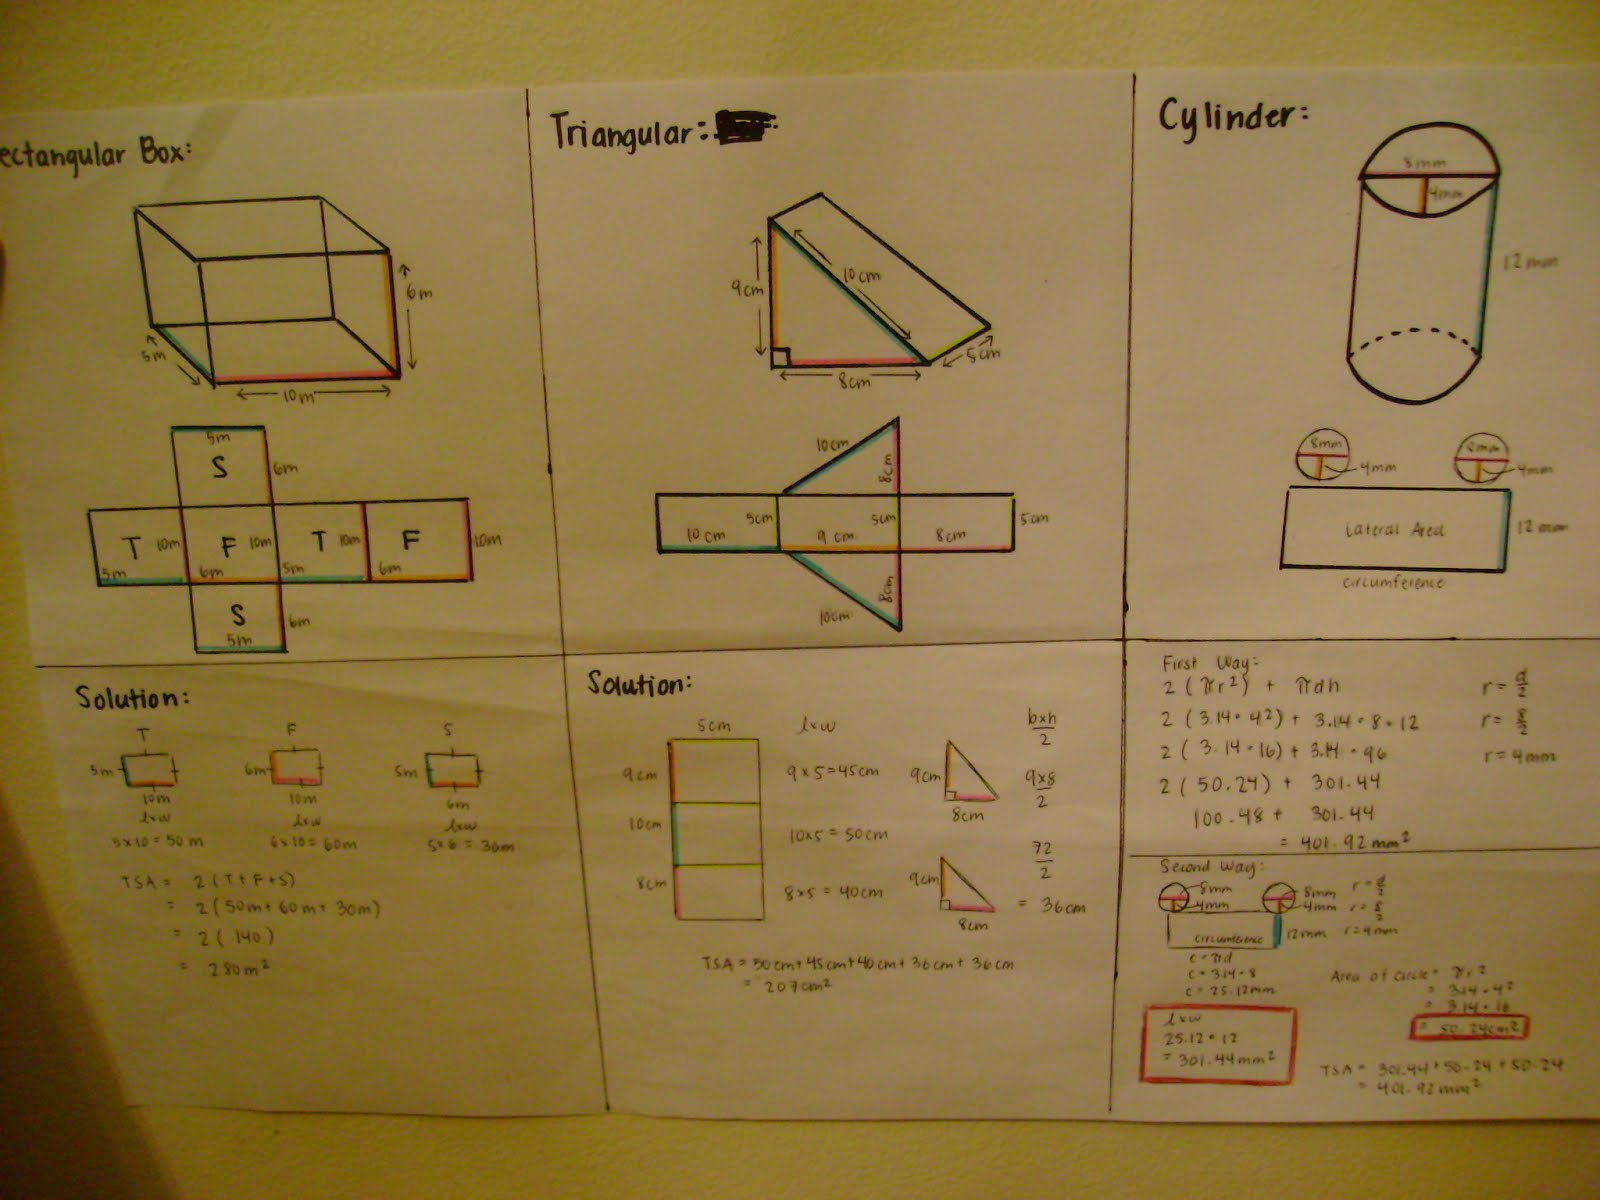 ectangular Box:
6m
5m
10m
5m
S
6m
T 10m F 10m T 10m F 10m
5m 6m 5m 6m
S
6m
5m
Solution:
T F S
5m 6m 5m
10m 10m 6m
lxw lxw lxw
5x10 = 50m 6x10 = 60m 5x6 = 30m
TSA = 2(T+F+S)
= 2(50m+60m+30m)
= 2(140)
= 280m²
Triangular:
9cm
10cm
5cm
8cm
10cm
8cm
10cm 5cm 9cm 5cm 8cm 5cm
8cm
10cm
Solution:
5cm lxw bxh/2
9cm 9x5=45cm 9cm 9x8/2
8cm
10cm 10x5=50cm 72/2
8cm 8x5=40cm 9cm = 36cm
8cm
TSA = 50cm+45cm+40cm+36cm+36cm
= 207cm²
Cylinder:
8mm
4mm
12mm
8mm 8mm
4mm 4mm
Lateral Area 12mm
circumference
First Way:
2(πr²) + πdh r = d/2
2(3.14•4²) + 3.14•8•12 r = 8/2
2(3.14•16) + 3.14•96 r = 4mm
2(50.24) + 301.44
100.48 + 301.44
= 401.92mm²
Second Way:
8mm 8mm r = d/2
4mm 4mm r = 8/2
circumference 12mm r = 4mm
c = πd
c = 3.14•8
c = 25.12mm
Area of Circle = πr²
= 3.14•4²
= 3.14•16
= 50.24cm²
lxw
25.12•12
= 301.44mm²
TSA = 301.44+50.24+50.24
= 401.92mm²